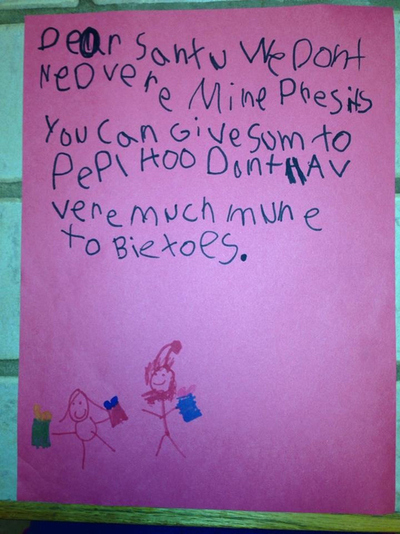 DeOr SantU We Dont
NeD vere Mine Presits
You can Give sum to
PePl HOO Dont HAV
vere much mune
to Bietoes.